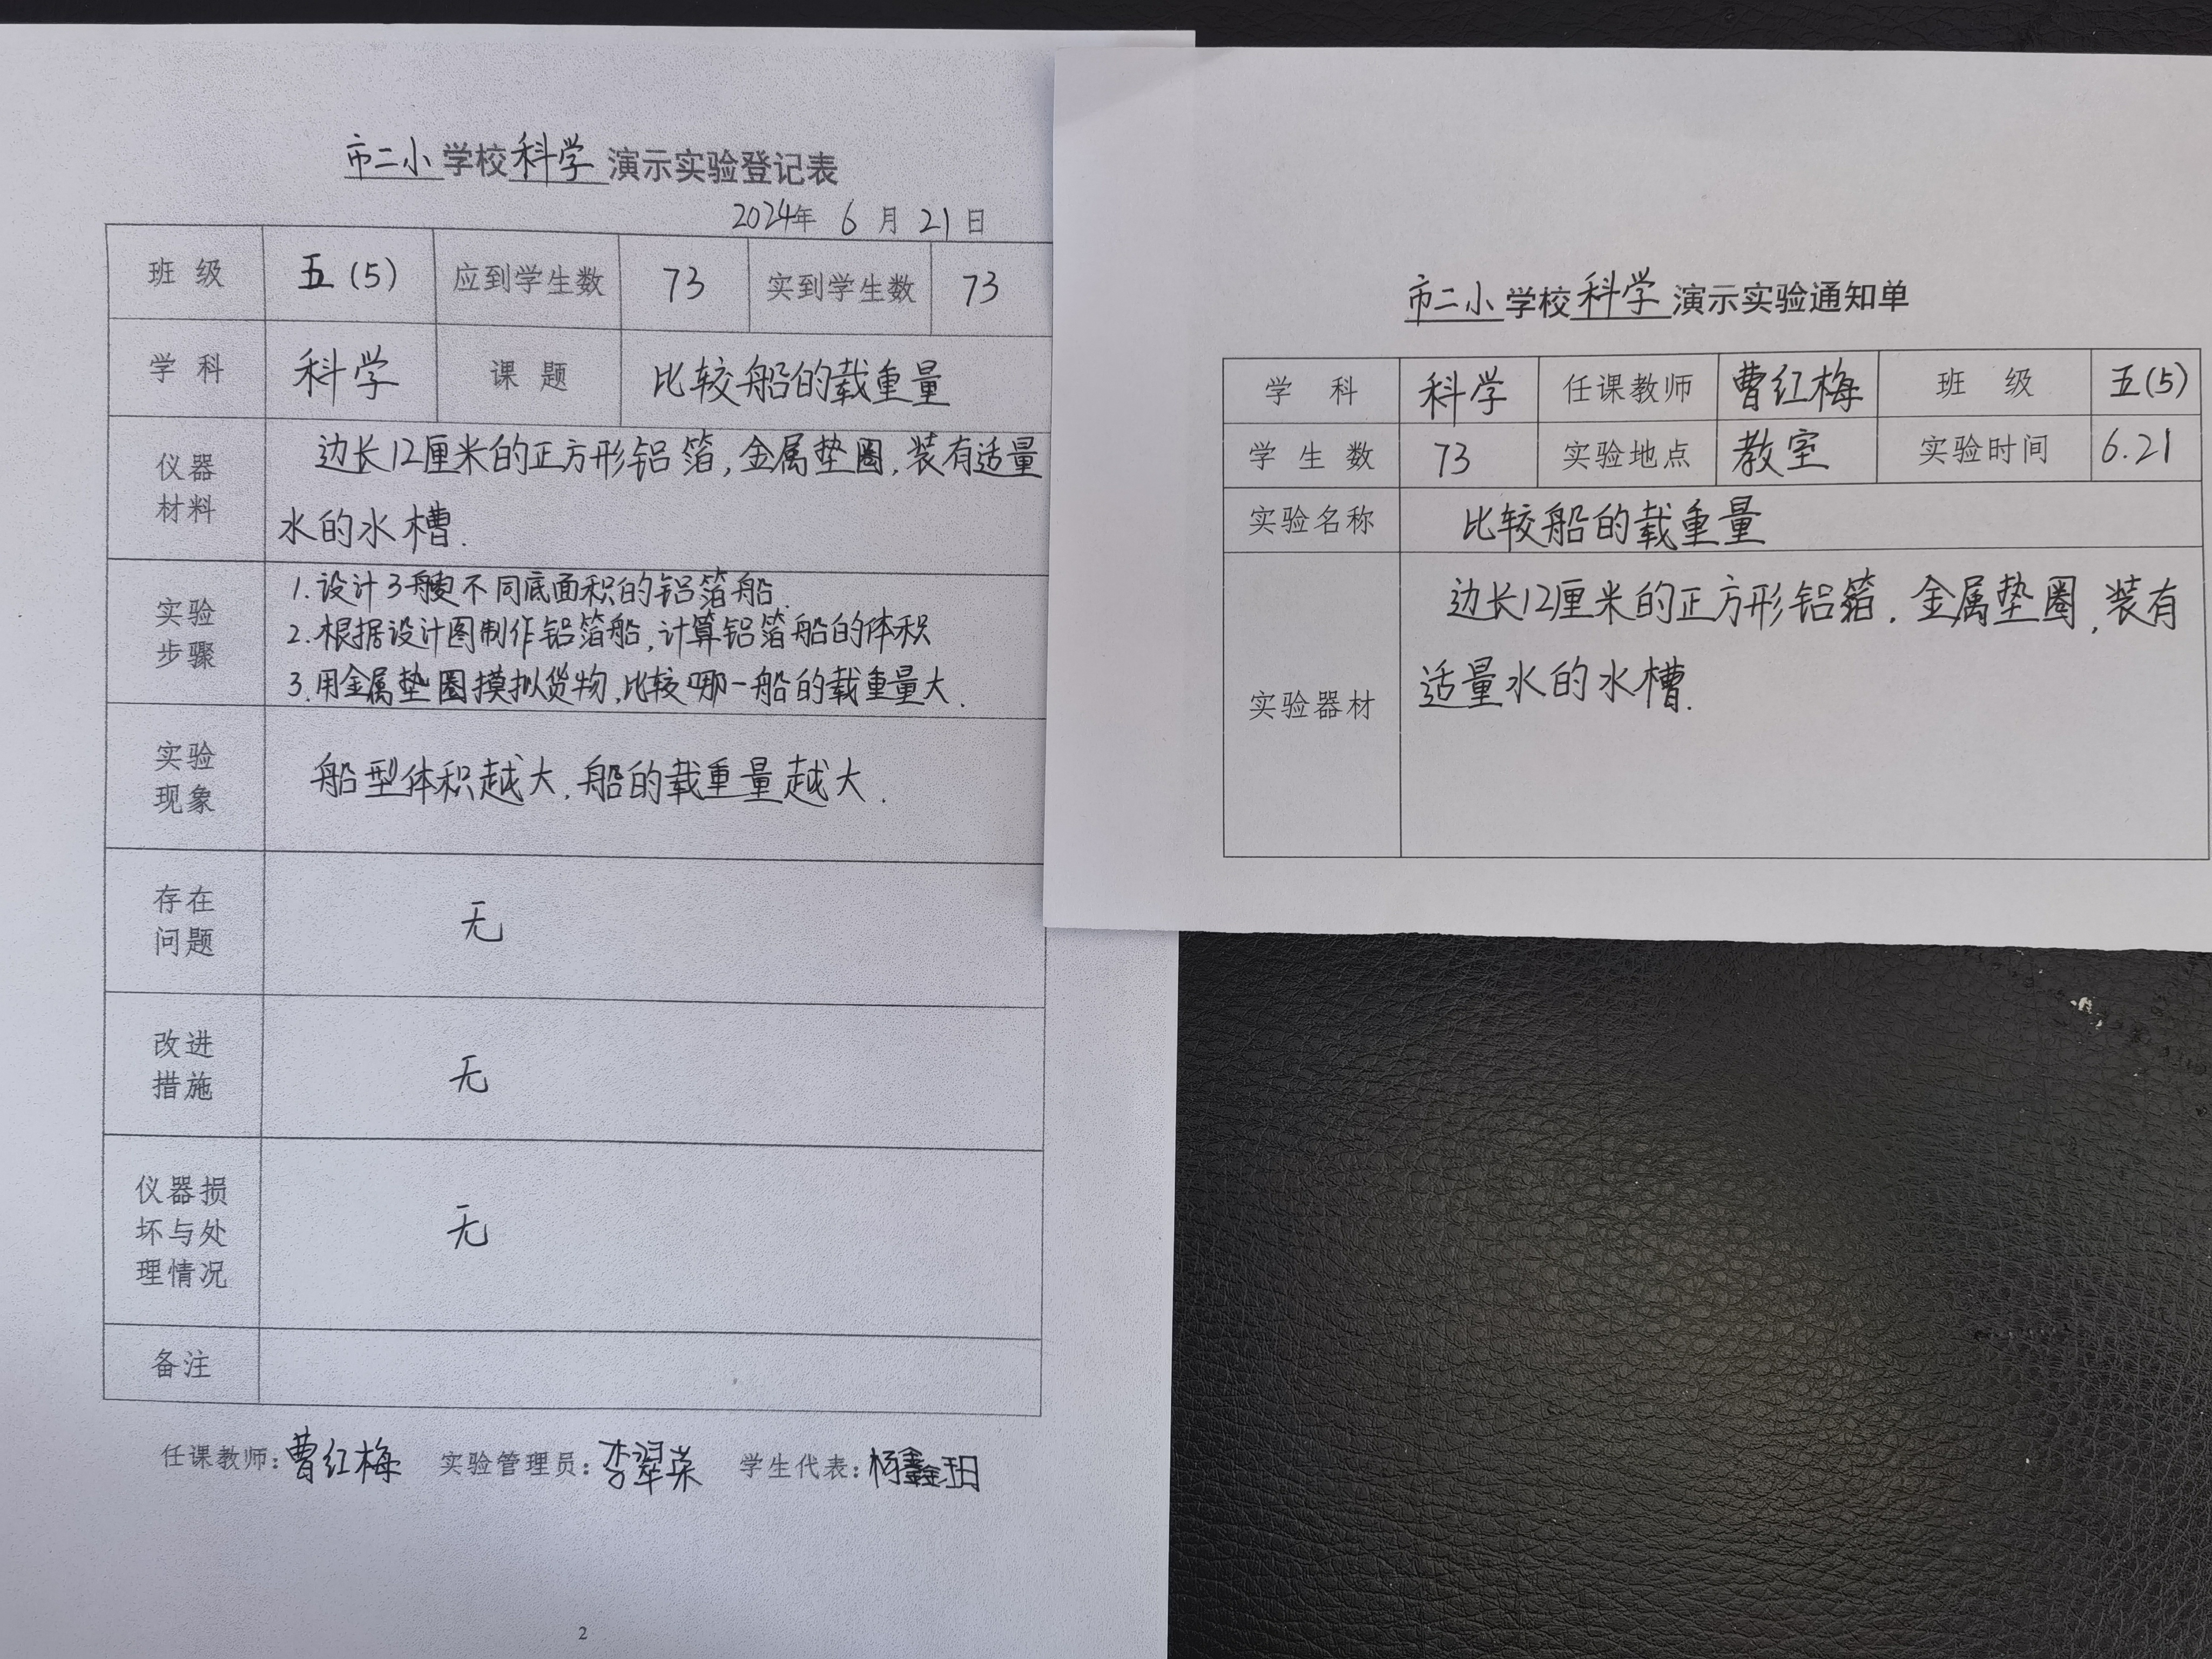 市二小学校科学演示实验登记表
2024年 6 月 21 日
班 级 五(5) 应到学生数 73 实到学生数 73
学 科 科学 课 题 比较船的载重量
仪器材料 边长12厘米的正方形铝箔,金属垫圈,装有适量
水的水槽.
实验步骤 1.设计3艘不同底面积的铝箔船.
2.根据设计图制作铝箔船,计算铝箔船的体积
3.用金属垫圈摸拟货物,比较哪一船的载重量大.
实验现象 船型体积越大.船的载重量越大.
存在问题 无
改进措施 无
仪器损坏与处理情况 无
备注
任课教师:曹红梅 实验管理员:李翠荣 学生代表:杨鑫玥
2
市二小学校科学演示实验通知单
学 科 科学 任课教师 曹红梅 班 级 五(5)
学 生 数 73 实验地点 教室 实验时间 6.21
实验名称 比较船的载重量
实验器材 边长12厘米的正方形铝箔.金属垫圈,装有
适量水的水槽.